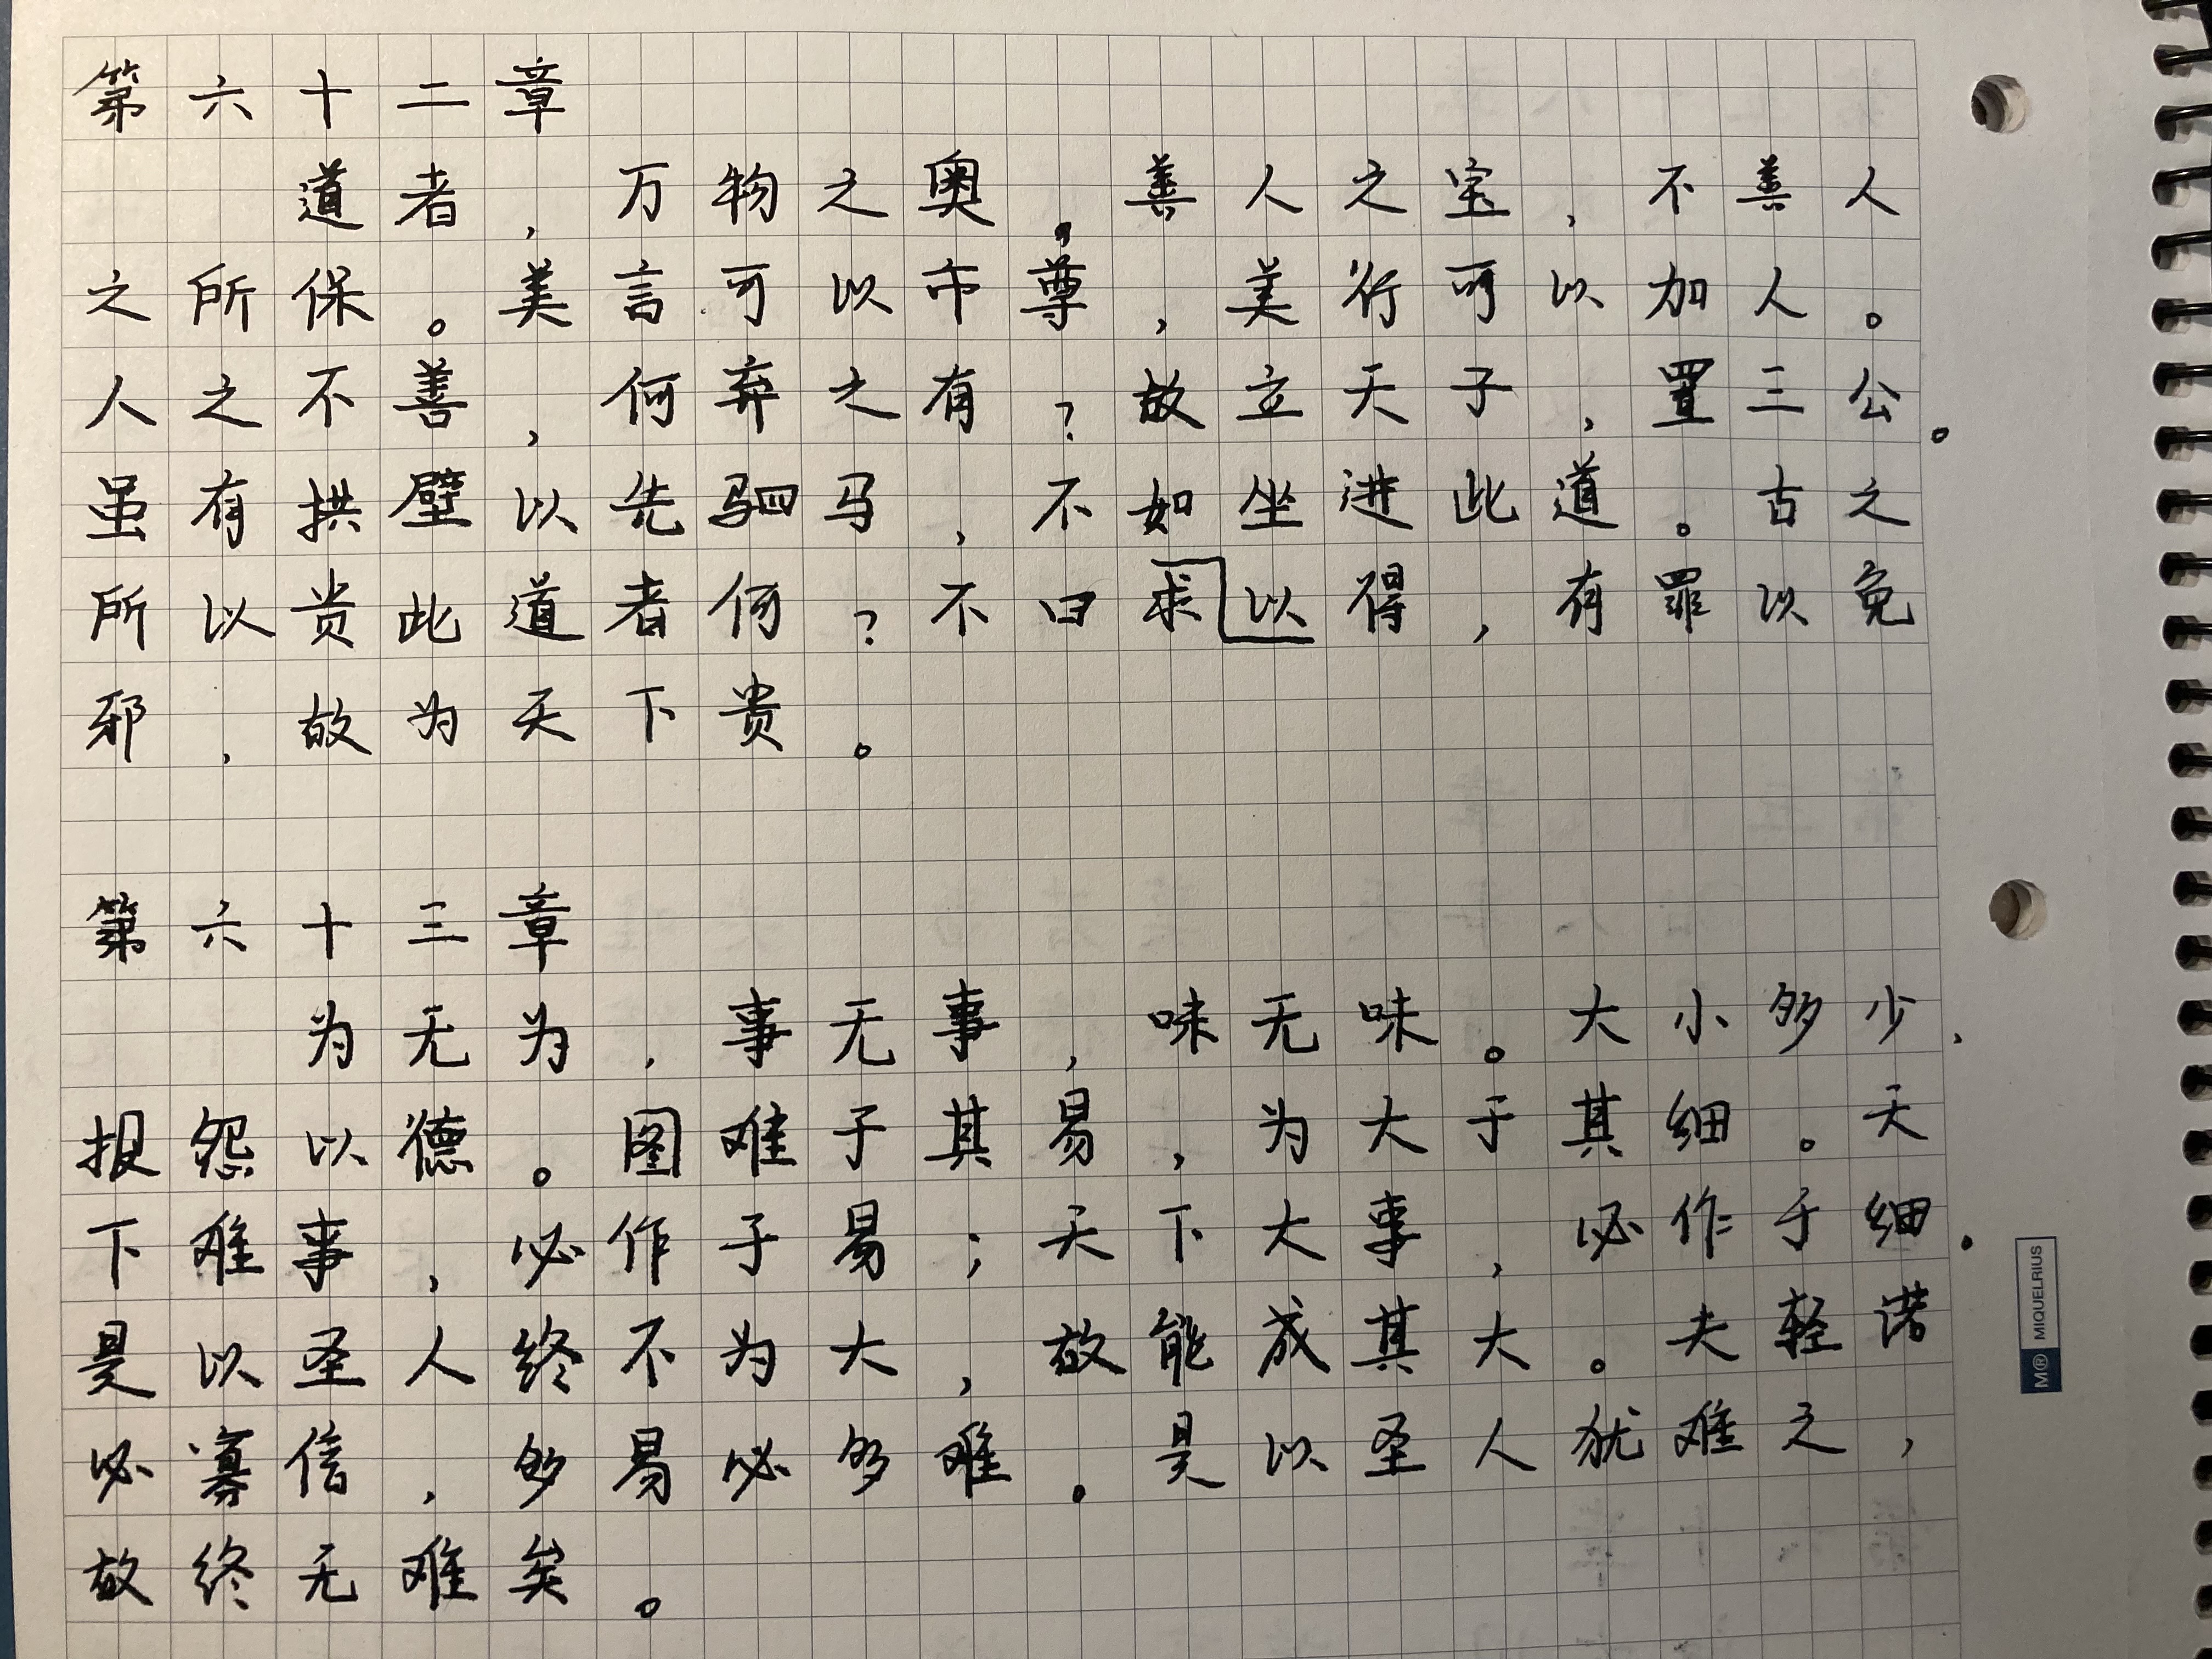 第六十二章
道者,万物之奥。善人之宝,不善人
之所保。美言可以市尊,美行可以加人。
人之不善,何弃之有?故立天子,置三公。
虽有拱璧以先驷马,不如坐进此道。古之
所以贵此道者何?不曰求以得,有罪以免
邪,故为天下贵。
第六十三章
为无为,事无事,味无味。大小多少,
报怨以德。图难于其易,为大于其细。天
下难事,必作于易;天下大事,必作于细。
是以圣人终不为大,故能成其大。夫轻诺
必寡信,多易必多难。是以圣人犹难之,
故终无难矣。
M® MIQUELRIUS